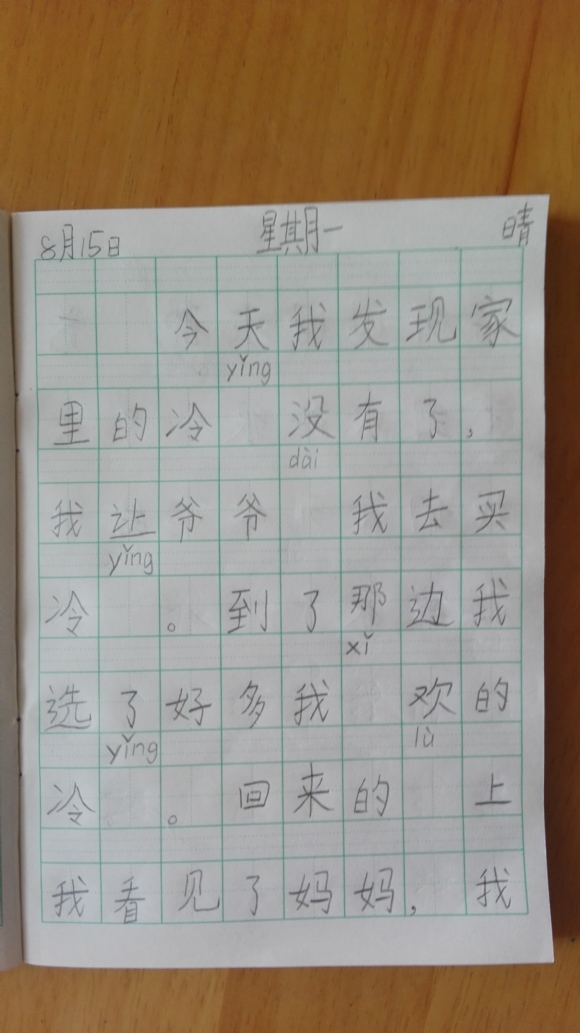 8月15日 星期一 晴
今天我发现家
yǐng
里的冷 没有了,
dài
我让爷爷 我去买
yǐng
冷 。到了那边我
xǐ
选了好多我 欢的
yǐng lù
冷 。回来的 上
我看见了妈妈,我